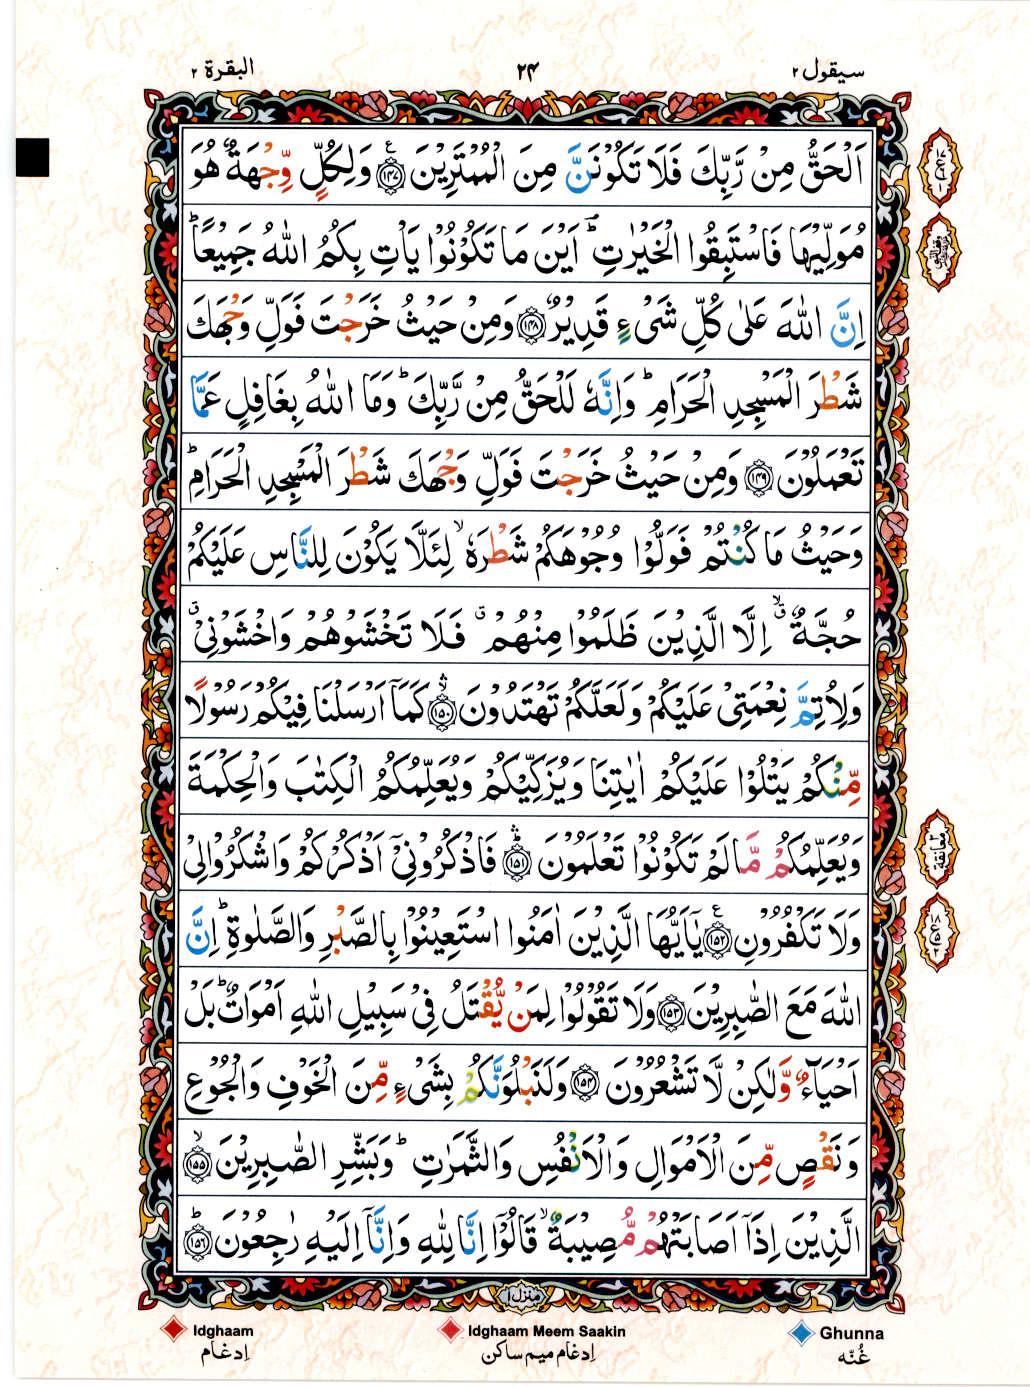 سيقول ٢
٢٤
البقرة ٢
اَلْحَقُّ مِنْ رَّبِّكَ فَلَا تَكُوْنَنَّ مِنَ الْمُمْتَرِيْنَ ﴿١٤٧﴾ۧ وَلِكُلٍّ وِّجْهَةٌ هُوَ
مُوَلِّيْهَا فَاسْتَبِقُوا الْخَيْرٰتِ ؕ اَيْنَ مَا تَكُوْنُوْا يَاْتِ بِكُمُ اللّٰهُ جَمِيْعًا ؕ
اِنَّ اللّٰهَ عَلٰى كُلِّ شَىْءٍ قَدِيْرٌ ﴿١٤٨﴾ وَمِنْ حَيْثُ خَرَجْتَ فَوَلِّ وَجْهَكَ
شَطْرَ الْمَسْجِدِ الْحَرَامِ ؕ وَاِنَّهٗ لَلْحَقُّ مِنْ رَّبِّكَ ؕ وَمَا اللّٰهُ بِغَافِلٍ عَمَّا
تَعْمَلُوْنَ ﴿١٤٩﴾ وَمِنْ حَيْثُ خَرَجْتَ فَوَلِّ وَجْهَكَ شَطْرَ الْمَسْجِدِ الْحَرَامِ ؕ
وَحَيْثُ مَا كُنْتُمْ فَوَلُّوْا وُجُوْهَكُمْ شَطْرَهٗ ۙ لِئَلَّا يَكُوْنَ لِلنَّاسِ عَلَيْكُمْ
حُجَّةٌ ۙق اِلَّا الَّذِيْنَ ظَلَمُوْا مِنْهُمْ ق فَلَا تَخْشَوْهُمْ وَاخْشَوْنِىْ ق
وَلِاُتِمَّ نِعْمَتِىْ عَلَيْكُمْ وَلَعَلَّكُمْ تَهْتَدُوْنَ ﴿١٥٠﴾ كَمَاۤ اَرْسَلْنَا فِيْكُمْ رَسُوْلًا
مِّنْكُمْ يَتْلُوْا عَلَيْكُمْ اٰيٰتِنَا وَيُزَكِّيْكُمْ وَيُعَلِّمُكُمُ الْكِتٰبَ وَالْحِكْمَةَ
وَيُعَلِّمُكُمْ مَّا لَمْ تَكُوْنُوْا تَعْلَمُوْنَ ﴿١٥١﴾ فَاذْكُرُوْنِىْۤ اَذْكُرْكُمْ وَاشْكُرُوْا لِىْ
وَلَا تَكْفُرُوْنِ ﴿١٥٢﴾ۧ يٰۤاَيُّهَا الَّذِيْنَ اٰمَنُوا اسْتَعِيْنُوْا بِالصَّبْرِ وَالصَّلٰوةِ ؕ اِنَّ
اللّٰهَ مَعَ الصّٰبِرِيْنَ ﴿١٥٣﴾ وَلَا تَقُوْلُوْا لِمَنْ يُّقْتَلُ فِىْ سَبِيْلِ اللّٰهِ اَمْوَاتٌ ؕ بَلْ
اَحْيَآءٌ وَّلٰكِنْ لَّا تَشْعُرُوْنَ ﴿١٥٤﴾ وَلَنَبْلُوَنَّكُمْ بِشَىْءٍ مِّنَ الْخَوْفِ وَالْجُوْعِ
وَنَقْصٍ مِّنَ الْاَمْوَالِ وَالْاَنْفُسِ وَالثَّمَرٰتِ ؕ وَبَشِّرِ الصّٰبِرِيْنَ ۙ﴿١٥٥﴾
الَّذِيْنَ اِذَاۤ اَصَابَتْهُمْ مُّصِيْبَةٌ ۙ قَالُوْۤا اِنَّا لِلّٰهِ وَاِنَّاۤ اِلَيْهِ رٰجِعُوْنَ ؕ﴿١٥٦﴾
معانقة
منزل ١
Ghunna
غُنّه
Idghaam Meem Saakin
اِدغام ميم ساكن
Idghaam
اِدغام